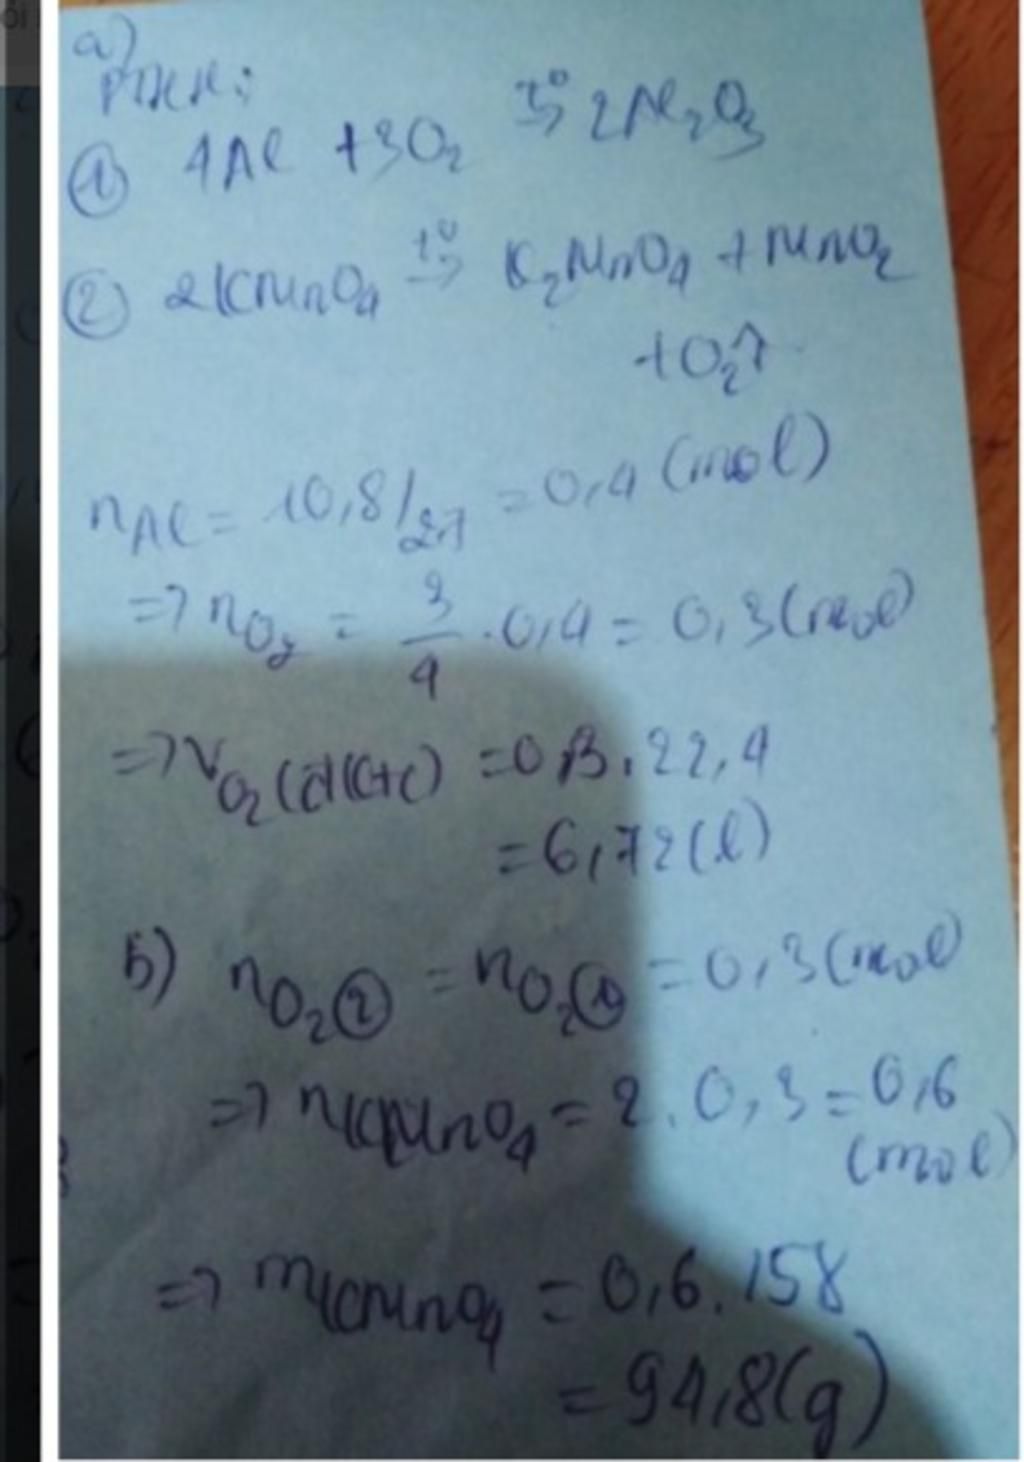 a)
PTHH:
① 4Al + 3O₂ t°→ 2Al₂O₃
② 2KMnO₄ t°→ K₂MnO₄ + MnO₂
+ O₂↑
nAl = 10,8/27 = 0,4 (mol)
=> nO₂ = 3/4 . 0,4 = 0,3 (mol)
=> VO₂(đktc) = 0,3 . 22,4
= 6,72 (l)
b) nO₂② = nO₂① = 0,3 (mol)
=> nKMnO₄ = 2 . 0,3 = 0,6
(mol)
=> mKMnO₄ = 0,6 . 158
= 94,8 (g)